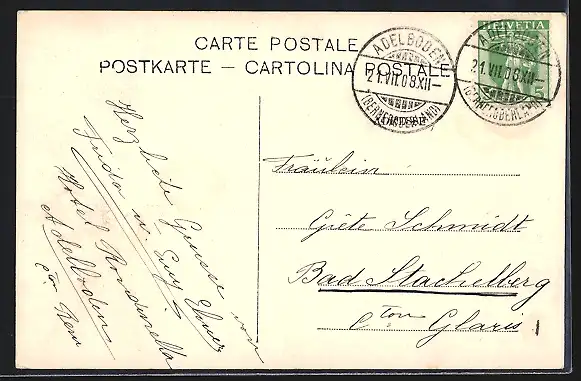 CARTE POSTALE
POSTKARTE — CARTOLINA POSTALE
HELVETIA
5
ADELBODEN
21.VII.08.XII—
(BERNER OBERLAND)
ADELBODEN
21.VII.08.XII—
(BERNER OBERLAND)
Herzliche Grüsse von
Frida u. Eug Elmer
Hotel Rondinella
Adelboden
Cton Bern
Fräulein
Grete Schmidt
Bad Stachelberg
Cton Glaris